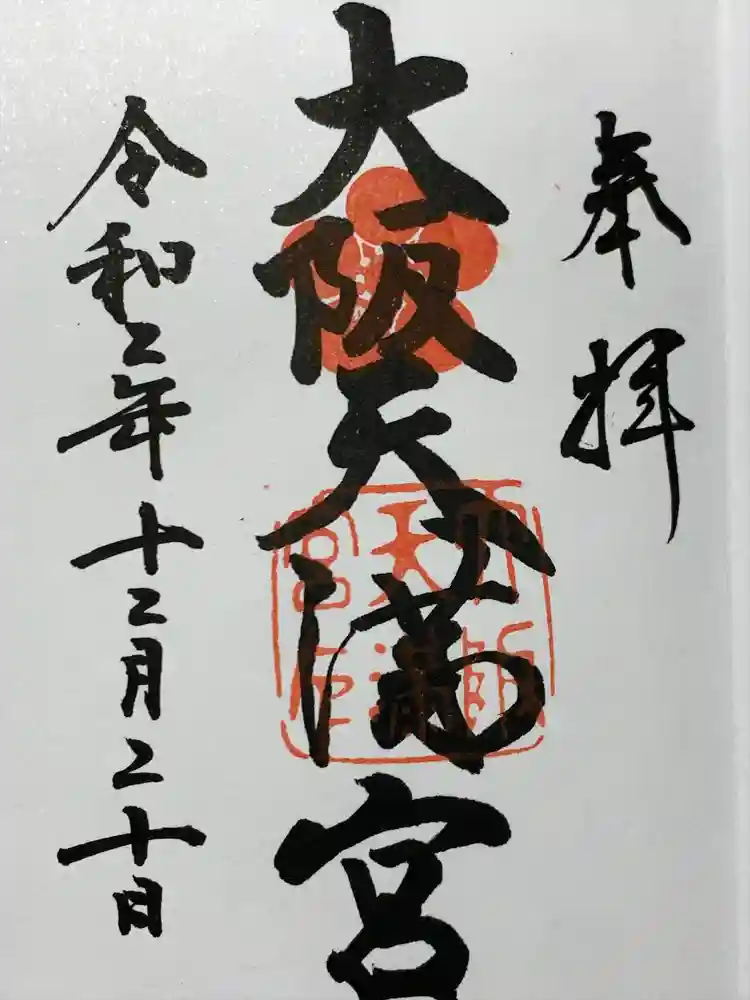 奉拝
大阪天満宮
大阪天満宮印
令和二年十二月二十日